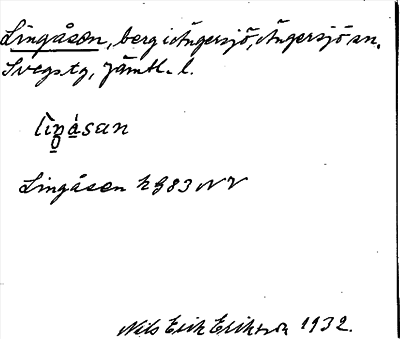 Lingåsen, berg i Ängersjö, Ängersjö sn.
Svegs tg, Jämtl. l.
Lingåsen hg 83 NV
Nils Erik Eriksson 1932.